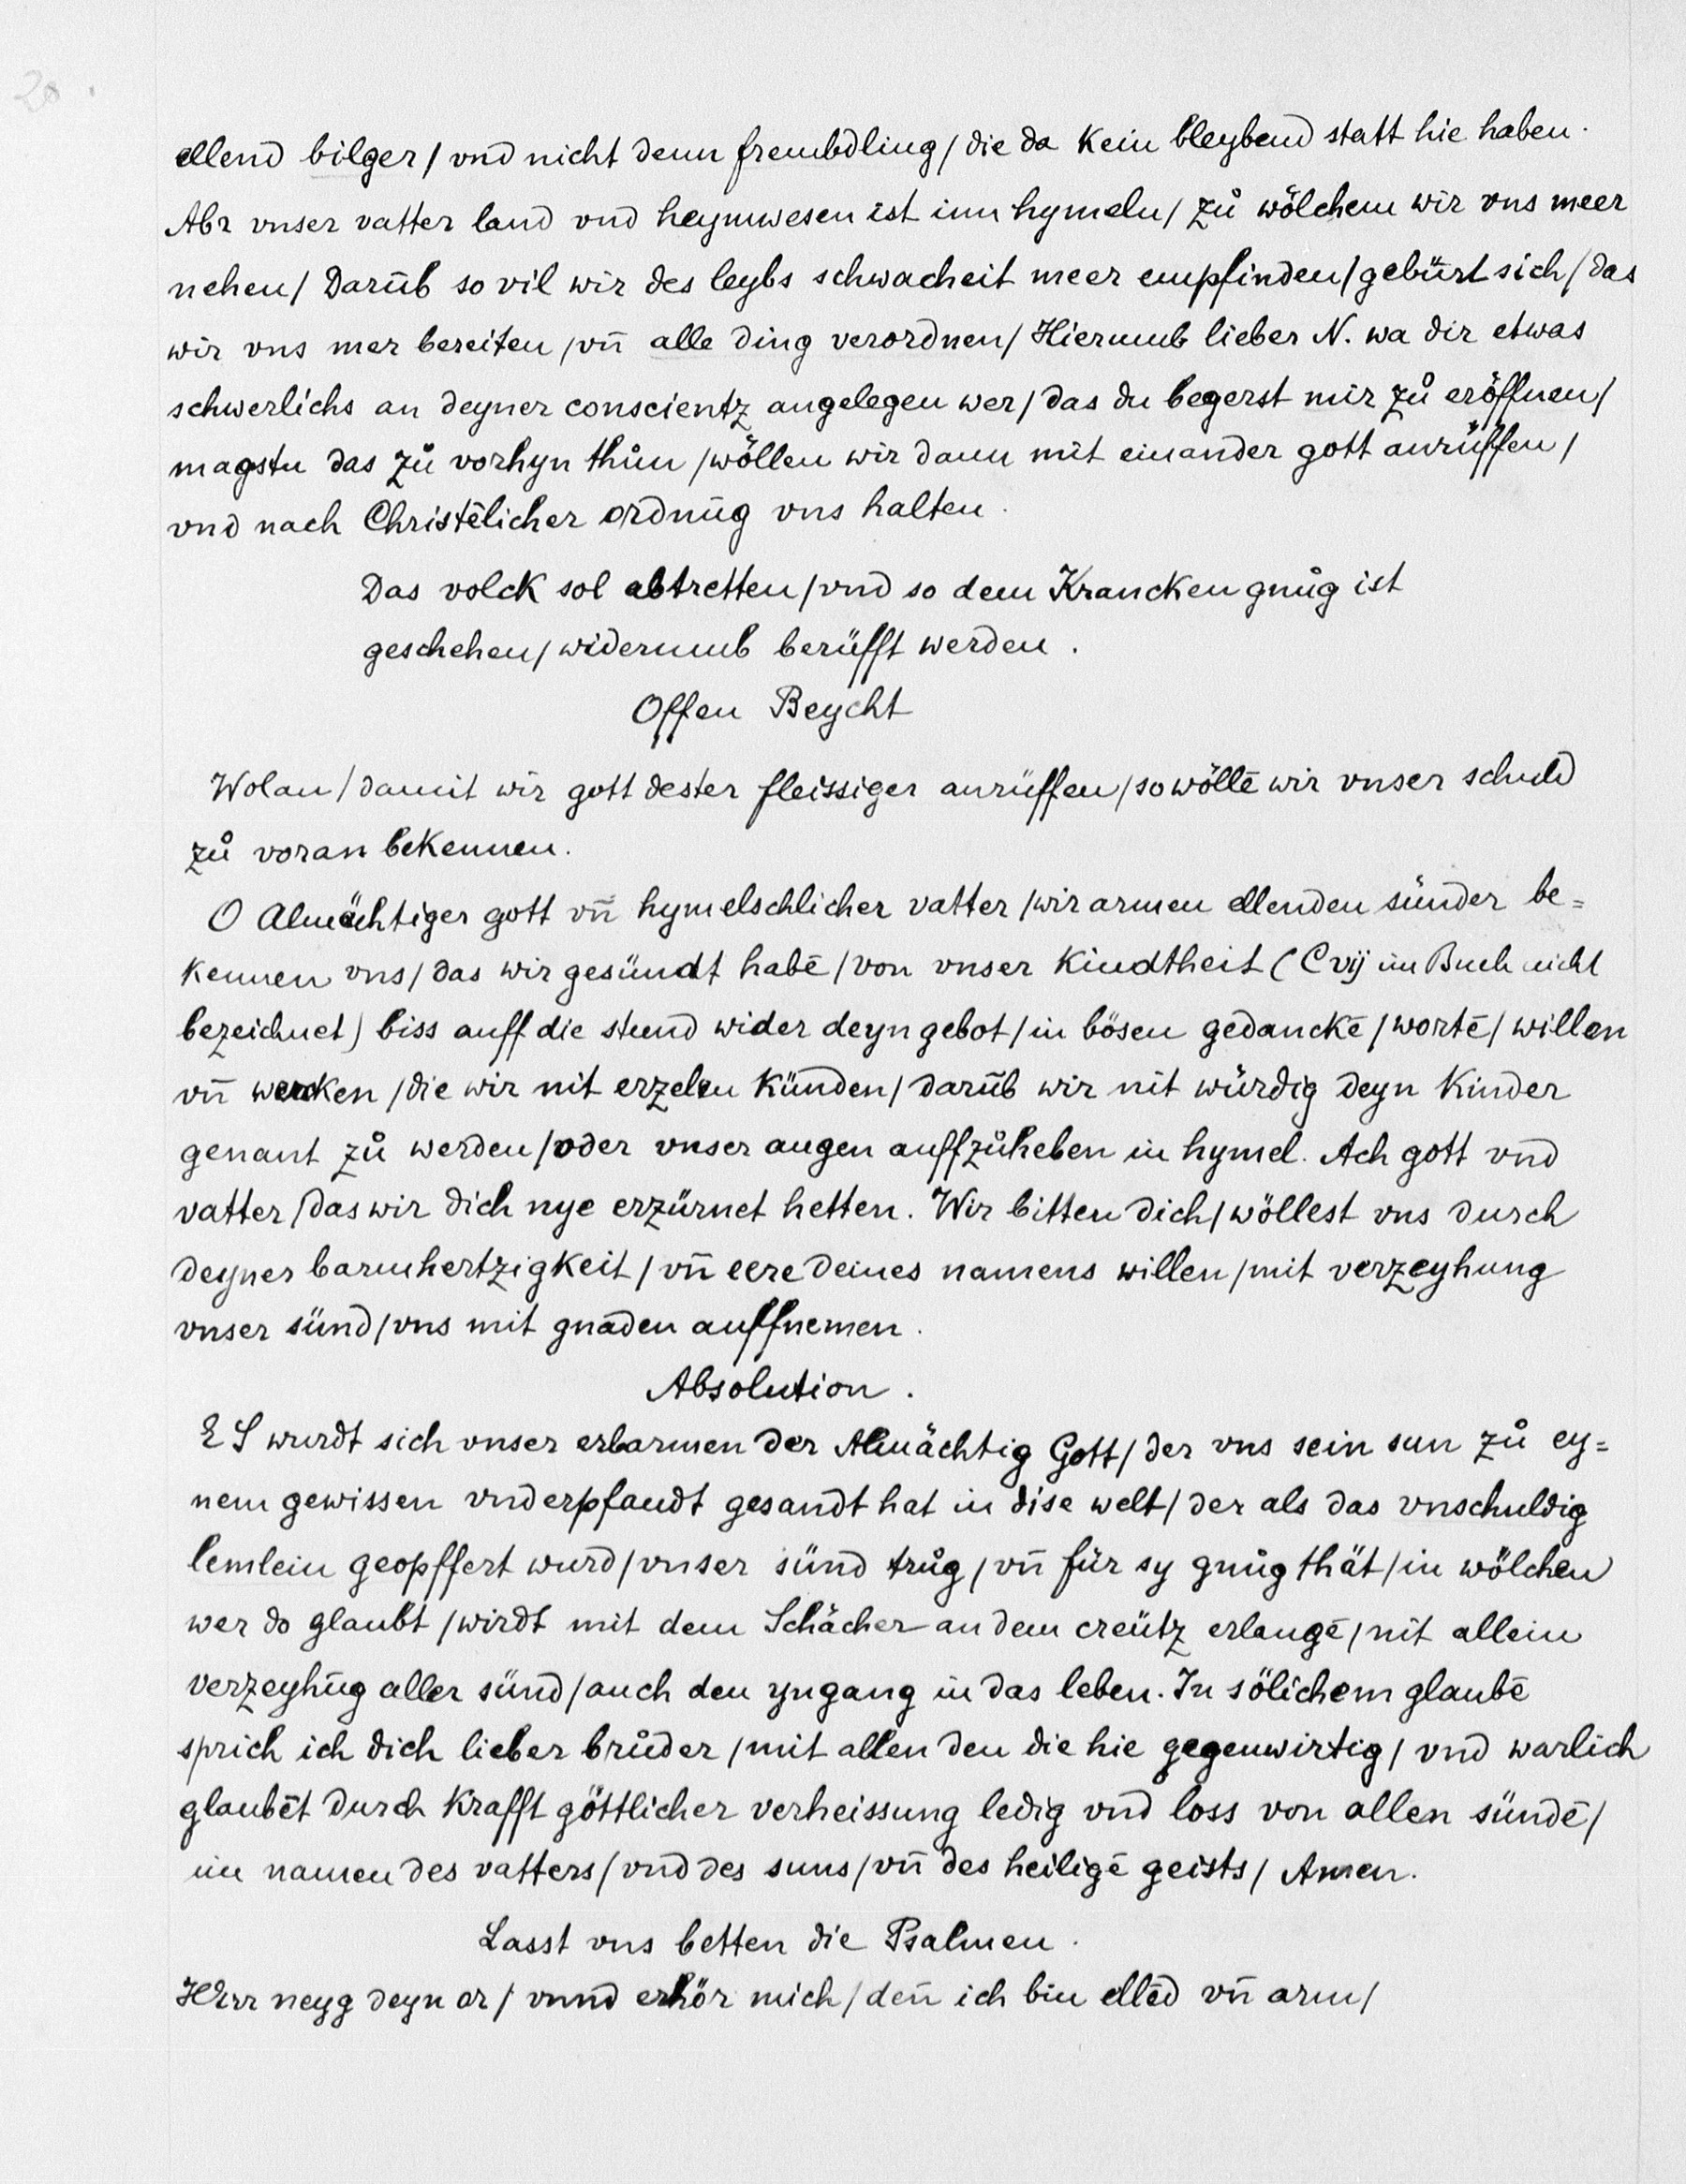 20.
ellend bilger / vnd nicht denn frembdling / die da kein bleybend statt hie haben.
Abr vnser vatter land vnd heymwesen ist inn hymeln / zů wölchem wir vns meer
nehen / Darūb so vil wir des leybs schwacheit meer empfinden / gebürt sich / das
wir vns mer bereiten / vn̄ alle ding verordnen / Hierumb lieber N. wa dir etwas
schwerlichs an deyner conscientz angelegen wer / das du begerst mir zů eröffnen /
magstu das zů vorhyn thůn / wöllen wir dann mit einander gott anrüffen /
vnd nach Christēlicher ordnūg vns halten.
Das volck sol abtretten / vnd so dem Krancken gnůg ist
geschehen / widerumb berüfft werden.
Offen Beycht
Wolan / damit wir gott dester fleissiger anrüffen / so wöllē wir vnser schuld
zů voran bekennen.
O Almächtiger gott vn̄ hymelschlicher vatter / wir armen ellenden sünder be=
kennen vns / das wir gesündt habē / von vnser kindtheit (C vij im Buch nicht
bezeichnet) biss auff die stund wider deyn gebot / in bösen gedanckē / wortē / willen
vn̄ wercken / die wir nit erzelen künden / darūb wir nit würdig deyn kinder
genant zů werden / oder vnser augen auffzůheben in hymel. Ach gott vnd
vatter / das wir dich nye erzürnet hetten. Wir bitten dich / wöllest vns durch
deyner barmhertzigkeit / vn̄ eere deines namens willen / mit verzeyhung
vnser sünd / vns mit gnaden auffnemen.
Absolution.
ES wurdt sich vnser erbarmen der Almächtig Gott / der vns sein sun zů ey=
nem gewissen vnderpfandt gesandt hat in dise welt / der als das vnschuldig
lemlein geopffert wurd / vnser sünd trůg / vn̄ für sy gnůg thät / in wölchen
wer do glaubt / wirdt mit dem Schächer an dem creütz erlangē / nit allein
verzeyhūg aller sünd / auch den yngang in das leben. In sölichem glaubē
sprich ich dich lieber brůder / mit allen den die hie gegenwirtig / vnd warlich
glaubēt durch krafft göttlicher verheissung ledig vnd loss von allen sündē /
im namen des vatters / vnd des suns / vn̄ des heiligē geists / Amen.
Lasst vns betten die Psalmen.
HErr neyg deyn or / vnnd erhör mich / den̄ ich bin ellēd vn̄ arm /